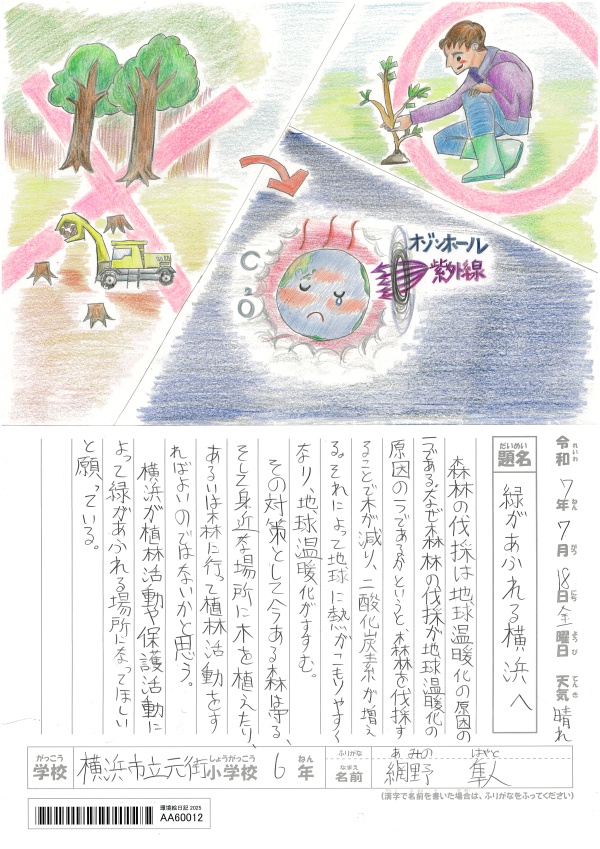 オゾンホール
紫外線
CO2
令和7年7月18日金曜日 天気 晴れ
れいわ ねん がつ にち ようび てんき
だいめい
題名
緑があふれる横浜へ
森林の伐採は地球温暖化の原因の
一つである。なぜ森林の伐採が地球温暖化の
原因の一つであるかというと、森林を伐採す
ることで木が減り、二酸化炭素が増え
る。それによって地球に熱がこもりやすく
なり、地球温暖化がすすむ。
その対策として今ある森は守る、
そして身近な場所に木を植えたり、
あるいは森に行って植林活動をす
ればよいのではないかと思う。
横浜が植林活動や保護活動に
よって緑があふれる場所になってほしい
と願っている。
がっこう しょうがっこう ねん
学校 横浜市立元街小学校 6年
ふりがな あみの はやと
なまえ
名前 網野 隼人
(漢字で名前を書いた場合は、ふりがなをふってください)
環境絵日記 2025
AA60012